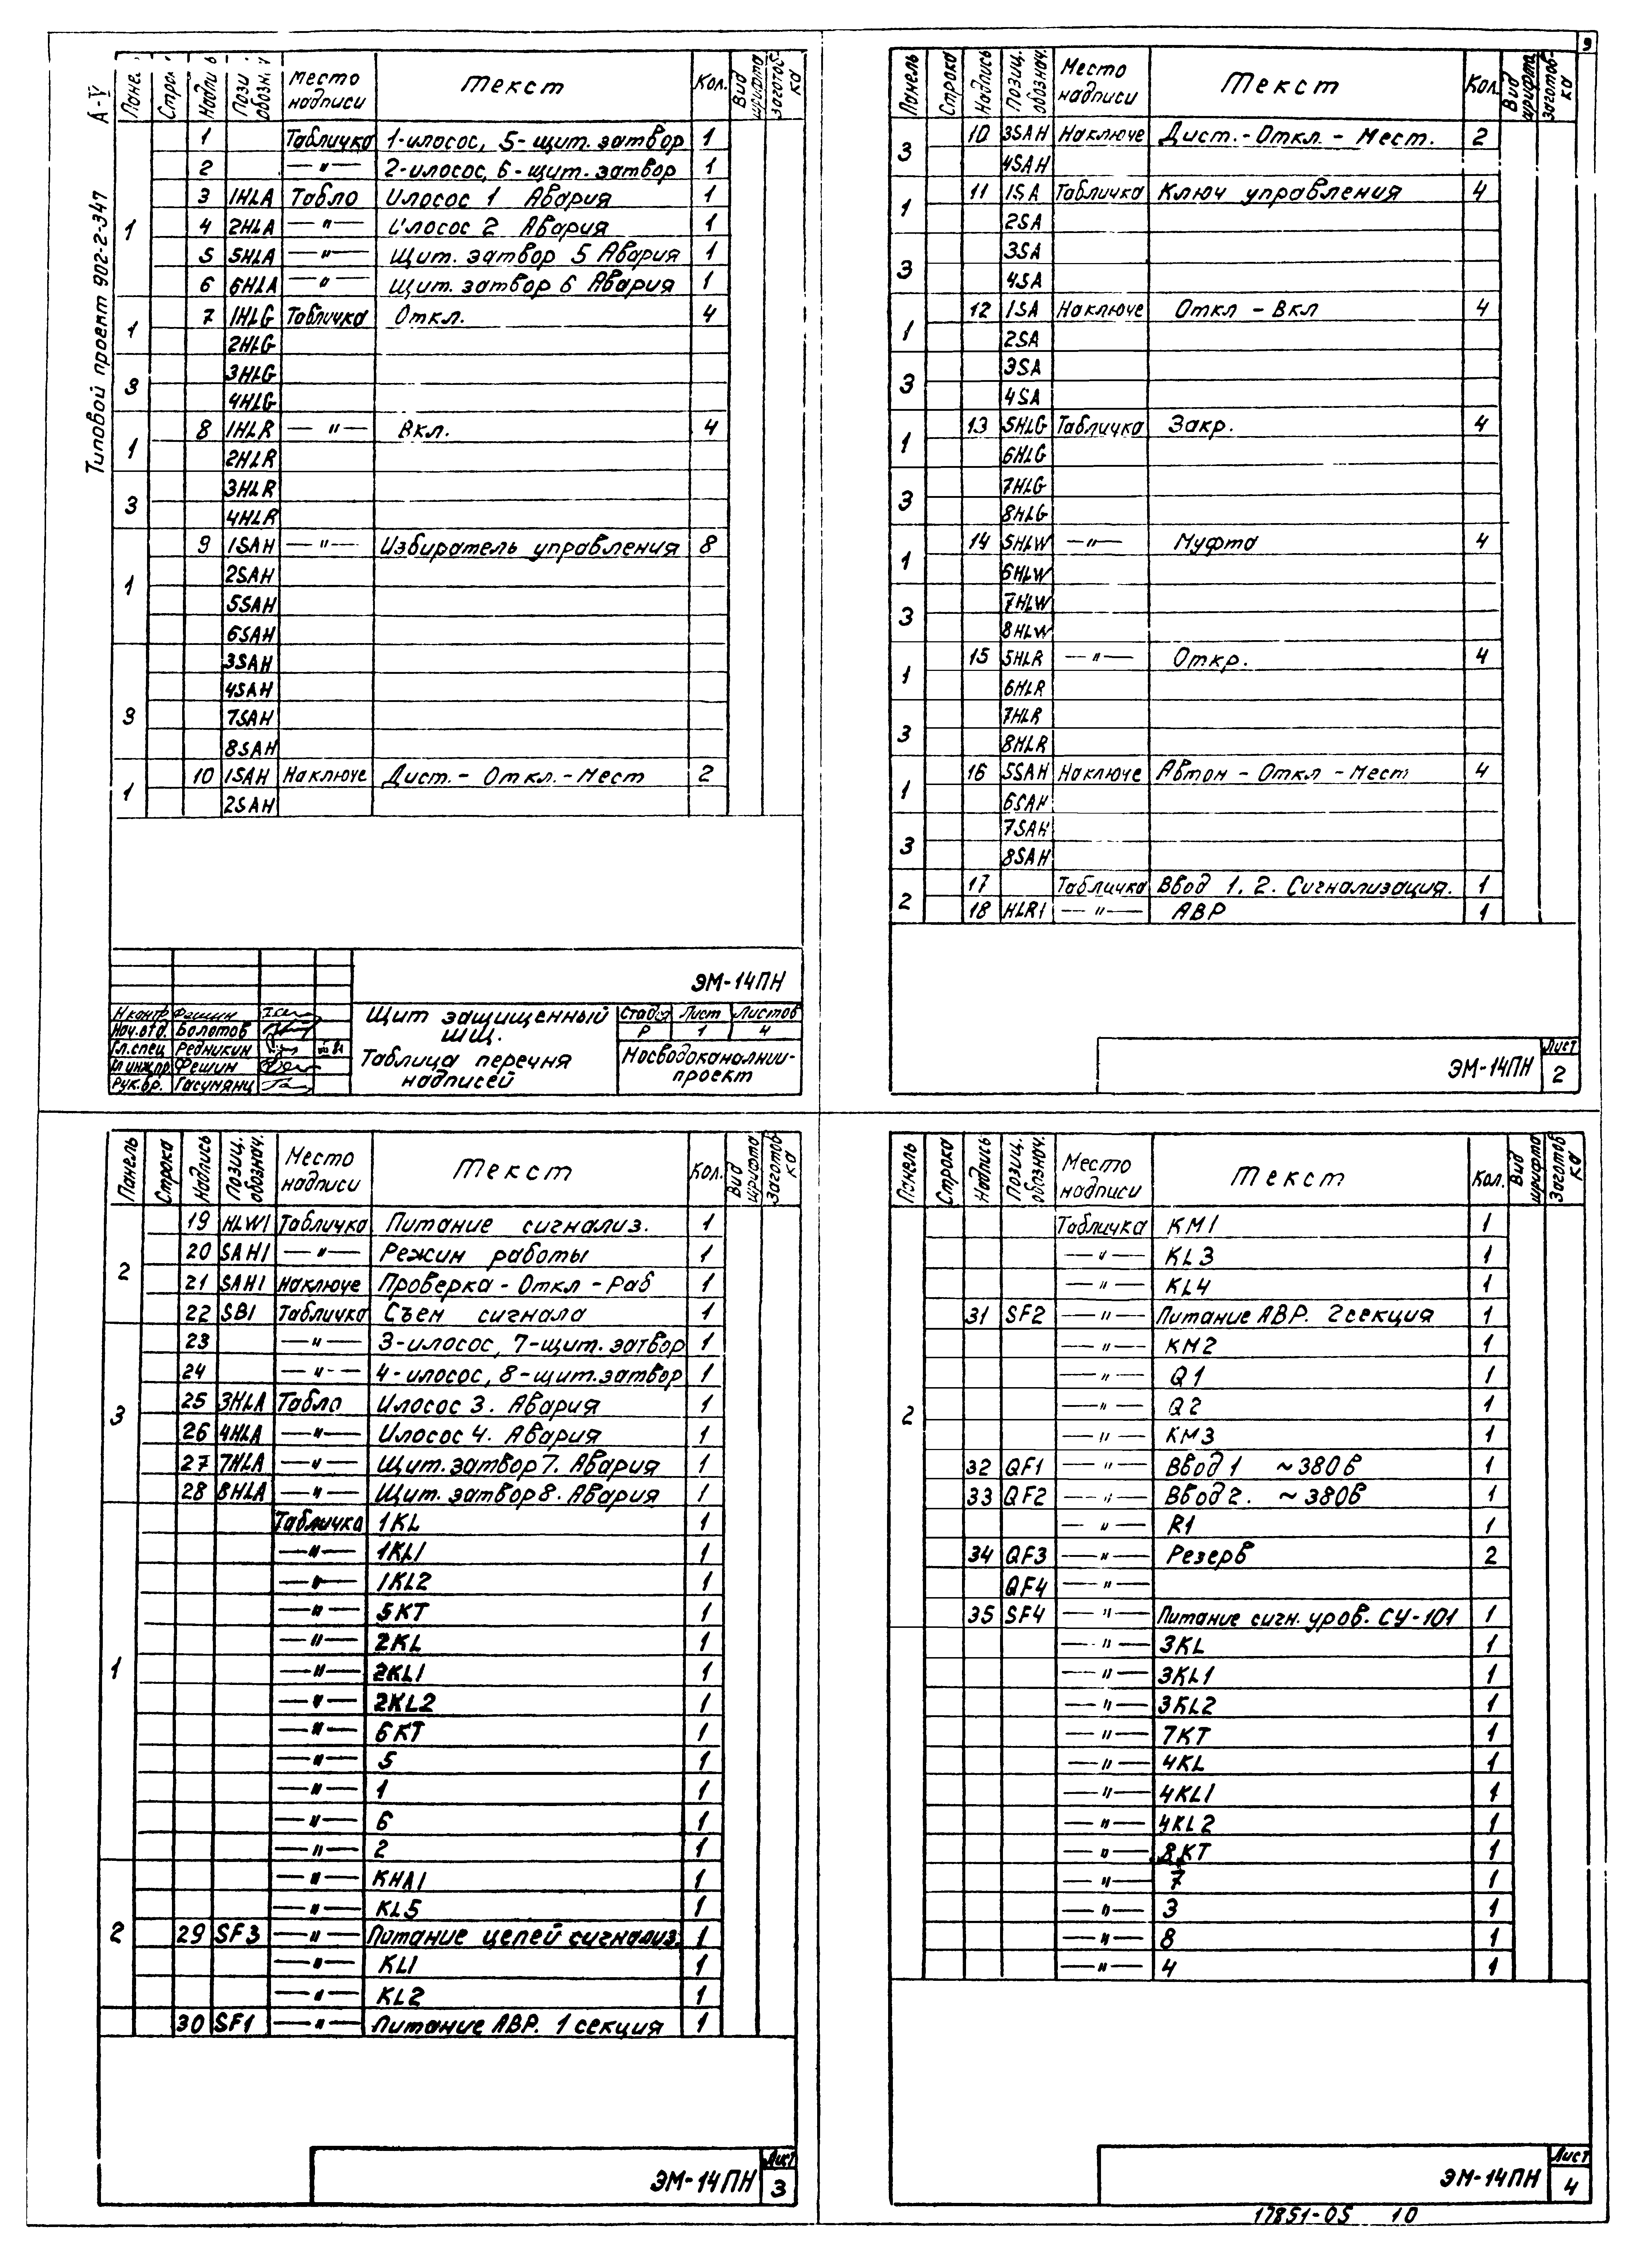 9
А-V
Типовой проект 902-2-347
Пане. Стро Надпи Пози обозн. Место надписи Текст Кол. Вид шрифта Заготов-ка
1 Табличка 1-илосос, 5-щит. затвор 1
2 —"— 2-илосос, 6-щит. затвор 1
3 1HLA Табло Илосос 1 Авария 1
1 4 2HLA —"— Илосос 2 Авария 1
5 5HLA —"— Щит. затвор 5 Авария 1
6 6HLA —"— Щит. затвор 6 Авария 1
7 1HLG Табличка Откл. 4
1 2HLG
3HLG
3 4HLG
8 1HLR —"— Вкл. 4
1 2HLR
3HLR
3 4HLR
9 1SAH —"— Избиратель управления 8
2SAH
1 5SAH
6SAH
3SAH
4SAH
3 7SAH
8SAH
10 1SAH Наключе Дист.- Откл.-Мест 2
1 2SAH
ЭМ-14ПН
Н контр Фешин
Нач.отд. Болотов
Гл.спец Редникин
Гл инж.пр. Фешин
Рук.бр. Гасумянц
Щит защищенный
ШЩ.
Таблица перечня
надписей
Стадия Лист Листов
Р 1 4
Мосводоканалнии-
проект
Панель Строка Надпись Позиц. обознач. Место надписи Текст Кол. Вид шрифта Заготов-ка
10 3SAH Наключе Дист.-Откл.-Мест. 2
3 4SAH
11 1SA Табличка Ключ управления 4
1 2SA
3SA
3 4SA
12 1SA Наключе Откл - Вкл 4
1 2SA
3SA
3 4SA
13 5HLG Табличка Закр. 4
1 6HLG
7HLG
3 8HLG
14 5HLW —"— Муфта 4
1 6HLW
7HLW
3 8HLW
15 5HLR —"— Откр. 4
1 6HLR
7HLR
3 8HLR
16 5SAH Наключе Автом - Откл - Мест 4
1 6SAH
7SAH
3 8SAH
17 Табличка Ввод 1, 2. Сигнализация. 1
2 18 HLR1 —"— АВР 1
ЭМ-14ПН
Лист
2
Панель Строка Надпись Позиц. обознач. Место надписи Текст Кол. Вид шрифта Заготов-ка
19 HLW1 Табличка Питание сигнализ. 1
20 SAH1 —"— Режим работы 1
2 21 SAH1 Наключе Проверка - Откл - Раб 1
22 SB1 Табличка Съем сигнала 1
23 —"— 3-илосос, 7-щит. затвор 1
24 —"— 4-илосос, 8-щит.затвор 1
25 3HLA Табло Илосос 3. Авария 1
3 26 4HLA —"— Илосос 4. Авария 1
27 7HLA —"— Щит.затвор 7. Авария 1
28 8HLA —"— Щит. затвор 8. Авария 1
Табличка 1KL 1
—"— 1KL1 1
—"— 1KL2 1
—"— 5KT 1
—"— 2KL 1
1 —"— 2KL1 1
—"— 2KL2 1
—"— 6KT 1
—"— 5 1
—"— 1 1
—"— 6 1
—"— 2 1
—"— KHA1 1
—"— KL5 1
2 29 SF3 —"— Питание цепей сигнализ. 1
—"— KL1 1
—"— KL2 1
30 SF1 —"— Питание АВР. 1 секция 1
ЭМ-14ПН
Лист
3
Панель Строка Надпись Позиц. обознач. Место надписи Текст Кол. Вид шрифта Заготов-ка
Табличка KM1 1
—"— KL3 1
—"— KL4 1
31 SF2 —"— Питание АВР. 2 секция 1
—"— KM2 1
—"— Q1 1
—"— Q2 1
2 —"— KM3 1
32 QF1 —"— Ввод 1 ~380в 1
33 QF2 —"— Ввод 2. ~380в 1
—"— R1 1
34 QF3 —"— Резерв 2
QF4 —"—
35 SF4 —"— Питание сигн. уров. СУ-101 1
—"— 3KL 1
—"— 3KL1 1
—"— 3KL2 1
—"— 7KT 1
—"— 4KL 1
—"— 4KL1 1
—"— 4KL2 1
—"— 8KT 1
—"— 7 1
—"— 3 1
—"— 8 1
—"— 4 1
ЭМ-14ПН
Лист
4
17851-05 10